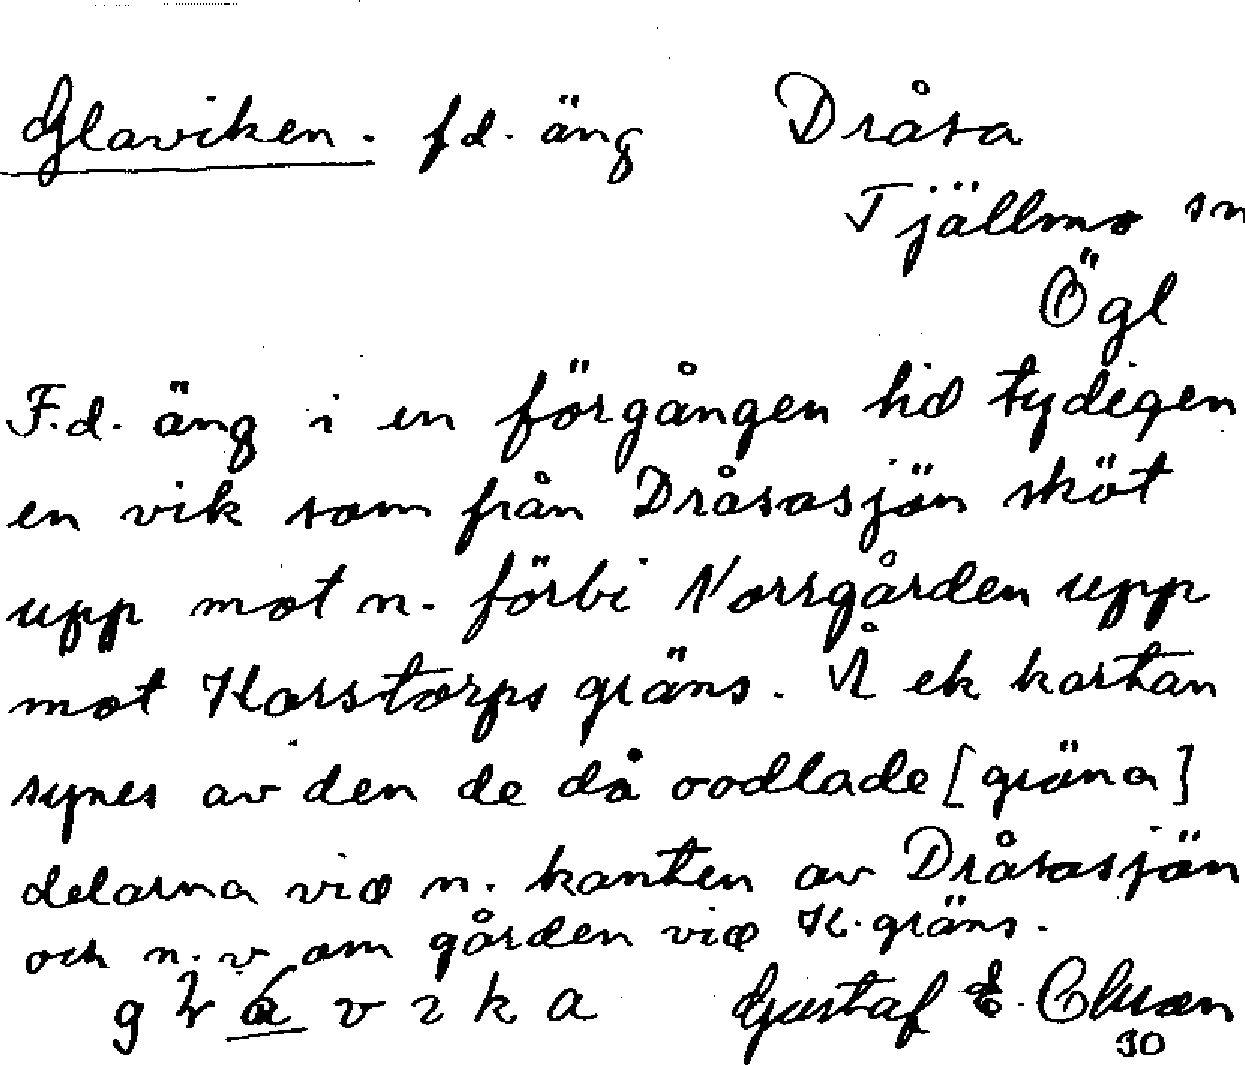 Glaviken. fd. äng Dråsa
Tjällmo sn
Ögl
F.d. äng i en förgången tid tydigen
en vik som från Dråsasjön sköt
upp mot n. förbi Norrgården upp
mot Karstorps gräns. Å ek kartan
synes av den de då oodlade [gröna]
delarna vid n. kanten av Dråsasjön
och n.v om gården vid K. gräns.
Gustaf E.
30